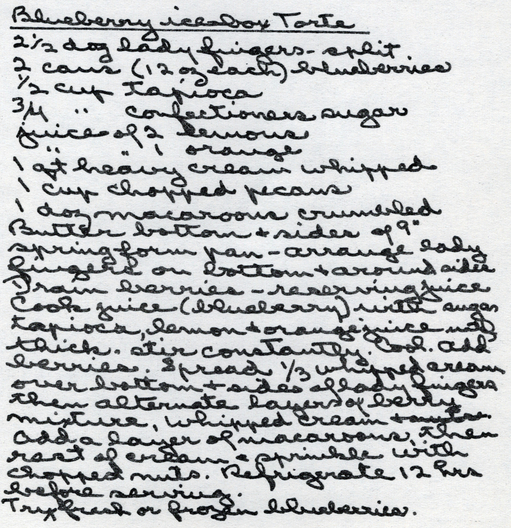 Blueberry icebox Torte
2 1/2 doz lady fingers - split
2 cans (12 oz each) blueberries
1/2 cup tapioca
3/4 " confectioners sugar
juice of 2 lemons
" " 1 orange
1 qt heavy cream whipped
1 cup chopped pecans
1 doz macaroons crumbled
Butter bottom + sides of 9"
springform pan - arrange lady
fingers on bottom + around sides
Drain berries - reserving juice
Cook juice (blueberry) with sugar
tapioca, lemon + orange juice until
thick. stir constantly. Cool. Add
berries. Spread 1/3 whipped cream
over bottom + sides of lady fingers
then alternate layers of berry
mixture, whipped cream +
add a layer of macaroons, then
rest of cream + sprinkle with
chopped nuts. Refrigerate 12 hrs
before serving.
Try fresh or frozen blueberries.